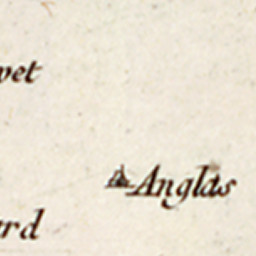 vet
Anglas
ard